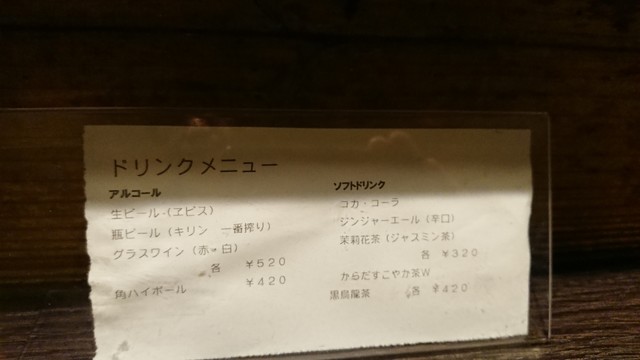 ドリンクメニュー
アルコール
生ビール（ヱビス）
瓶ビール（キリン　一番搾り）
グラスワイン（赤・白）
各　￥５２０
角ハイボール　￥４２０
ソフトドリンク
コカ・コーラ
ジンジャーエール（辛口）
茉莉花茶（ジャスミン茶）
各　￥３２０
からだすこやか茶Ｗ
黒烏龍茶　各　￥４２０